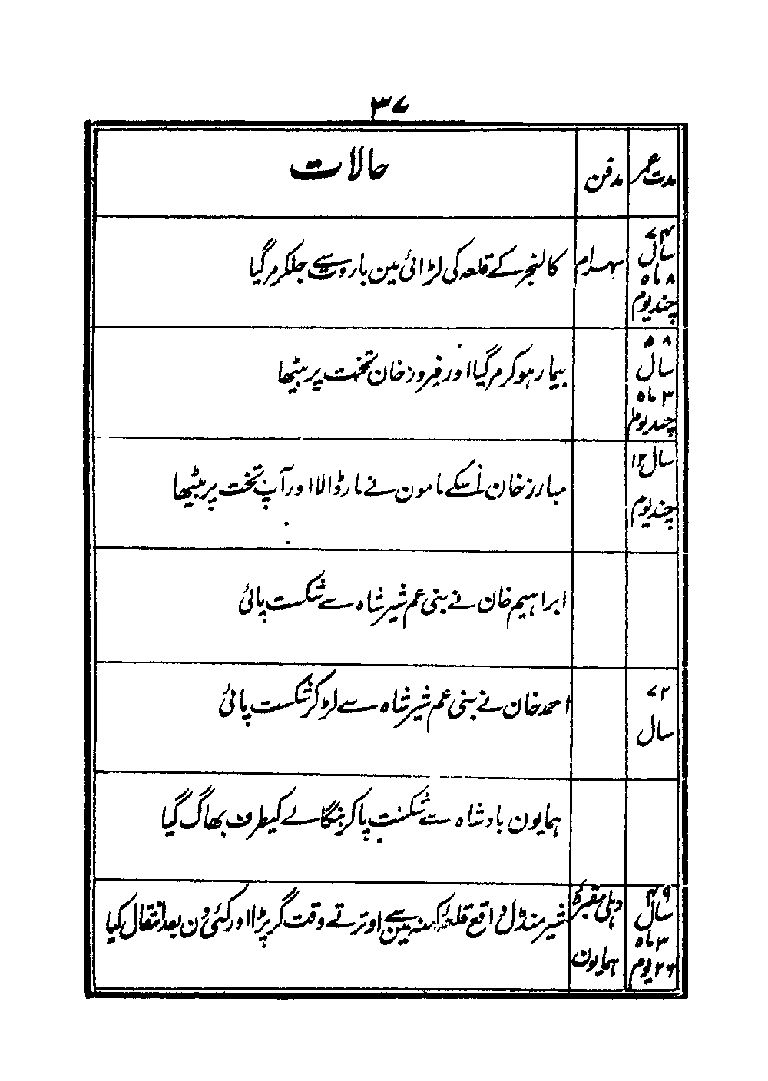 ۳۷
مدت عمر مدفن حالات
۷۴ سال ۸ ماہ چند یوم سہسرام کالنجر کے قلعہ کی لڑائی مین باروت سے جلکر مرگیا
۵۸ سال ۳ ماہ چند یوم بیمار ہوکر مرگیا اور فیروز خان تخت پر بیٹھا
۱۲ سال چند یوم مبارز خان نے اُسکے مامون نے مار ڈالا اور آپ تخت پر بیٹھا
ابراہیم خان نے بنی عم شیر شاہ سے شکست پائی
۷۲ سال احمد خان نے بنی عم شیر شاہ سے لڑکر شکست پائی
ہمایون بادشاہ سے شکست پاکر بنگالے کیطرف بھاگ گیا
۴۹ سال ۳ ماہ ۲۶ یوم دہلی مقبرۂ ہمایون شیر منڈل واقع قلعہ کہنہ مین سے اوترتے وقت گر پڑا اور کئی دن بعد انتقال کیا